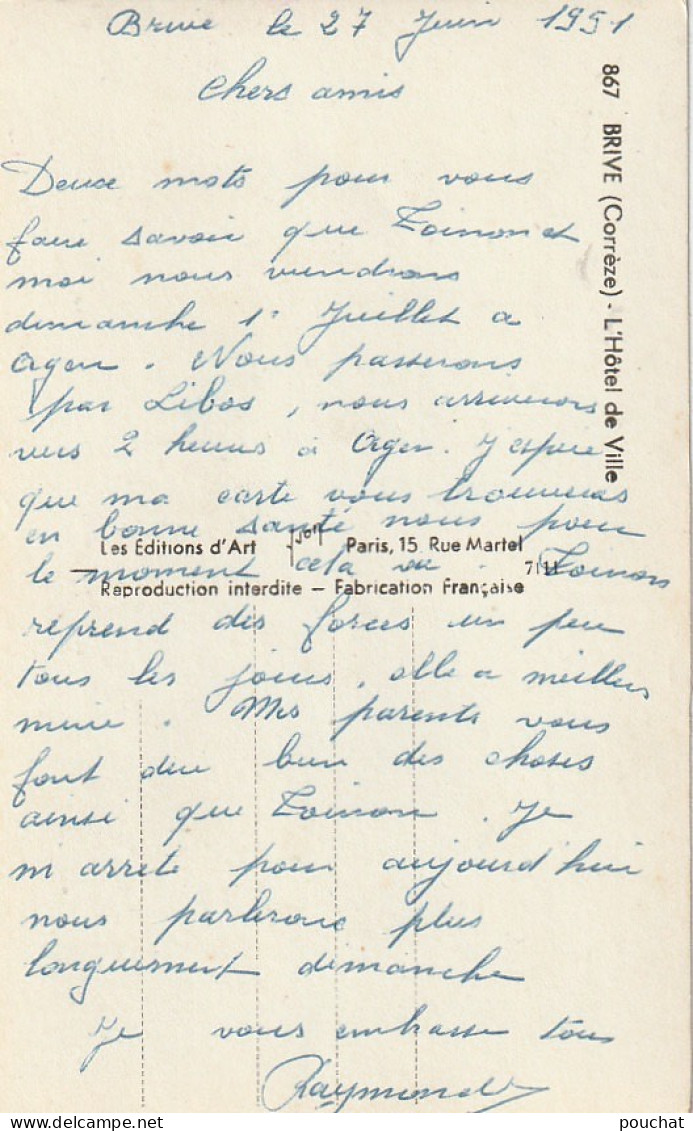 Brive le 27 Juin 1951
Chers amis
Deux mots pour vous
faire savoir que Toinon et
moi nous viendrons
dimanche 1er Juillet a
Agen. Nous passerons
par Libos, nous arriverons
vers 2 heures à Agen. J espère
que ma carte vous trouveras
en bonne santé nous pour
le moment cela va. Toinon
reprend des forces un peu
tous les jours, elle a meilleur
mine. Mes parents vous
font dire bien des choses
ainsi que Toinon. Je
m arrete pour aujourd'hui
nous parlerons plus
longuement dimanche
Je vous embrasse tous
Raymond
867 BRIVE (Corrèze) - L'Hôtel de Ville
Les Éditions d'Art Paris, 15 Rue Martel
7111
Reproduction interdite — Fabrication Française
pouchat